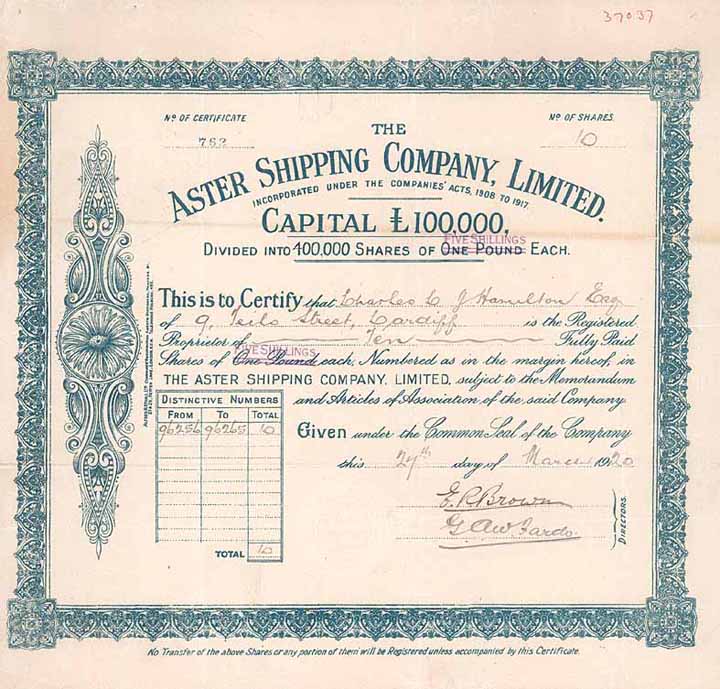 37037
No OF CERTIFICATE
762
No OF SHARES
10
THE
ASTER SHIPPING COMPANY, LIMITED.
INCORPORATED UNDER THE COMPANIES' ACTS, 1908 TO 1917.
CAPITAL £100,000,
FIVE SHILLINGS
DIVIDED INTO 400,000 SHARES OF ONE POUND EACH.
This is to Certify that Charles L J Hamilton Esq
of 9, Teilo Street, Cardiff is the Registered
Proprietor of Ten Fully Paid
FIVE SHILLINGS
Shares of One Pound each, Numbered as in the margin hereof, in
THE ASTER SHIPPING COMPANY, LIMITED, subject to the Memorandum
and Articles of Association of the said Company
DISTINCTIVE NUMBERS
FROM TO TOTAL
96256 96265 10
TOTAL 10
Given under the Common Seal of the Company
this 27th day of March 1920
E. R. Brown
DIRECTORS.
No Transfer of the above Shares or any portion of them will be Registered unless accompanied by this Certificate.